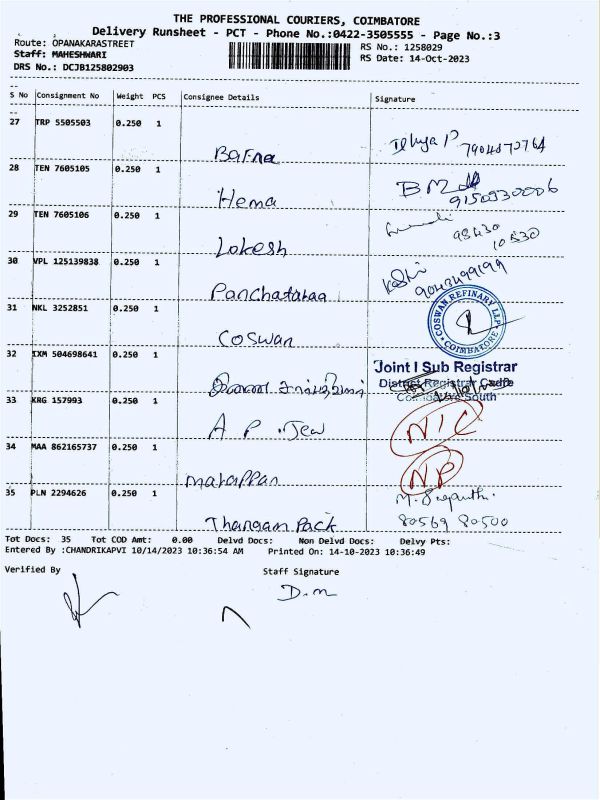 THE PROFESSIONAL COURIERS, COIMBATORE
Delivery Runsheet - PCT - Phone No.:0422-3505555 - Page No.:3
Route: OPANAKARASTREET
RS No.: 1258029
Staff: MAHESHWARI
RS Date: 14-Oct-2023
DRS No.: DCJB125802903
S No Consignment No Weight PCS Consignee Details Signature
27 TRP 5505503 0.250 1
Barna
28 TEN 7605105 0.250 1
Hema
29 TEN 7605106 0.250 1
Lokesh
30 VPL 125139838 0.250 1
Panchataraa
31 NKL 3252851 0.250 1
Coswan
COSWAN REFINARY LLP
COIMBATORE
32 IXM 504698641 0.250 1
Joint I Sub Registrar
District Registrar Cadre
Coimbatore South
33 KRG 157993 0.250 1
A P Jew
N/C
34 MAA 862165737 0.250 1
NP
35 PLN 2294626 0.250 1
Thangam Pack
80569 80500
Tot Docs: 35 Tot COD Amt: 0.00 Delvd Docs: Non Delvd Docs: Delvy Pts:
Entered By :CHANDRIKAPVI 10/14/2023 10:36:54 AM Printed On: 14-10-2023 10:36:49
Verified By Staff Signature
D.m